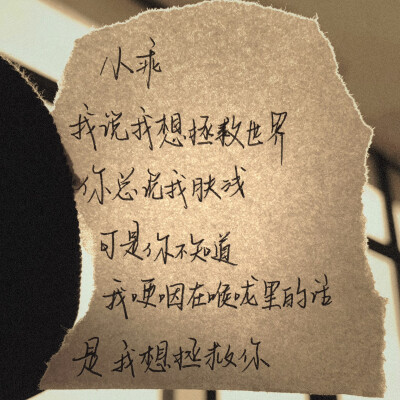 小乖
我说我想拯救世界
你总说我肤浅
可是你不知道
我哽咽在喉咙里的话
是我想拯救你